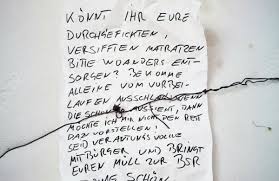 KÖNNT IHR EURE
DURCHGEFICKTEN,
VERSIFFTEN MATRATZEN
BITTE WOANDERS ENT-
SORGEN? BEKOMME
ALLEINE VOM VORBEI-
LAUFEN AUSSCHLAG. WENN
DIE SCHON AUSSIEHT, DANN
MÖCHTE ICH MIR NICHT DEN REST
DAZU VORSTELLEN!
SEID VERANTUNGSVOLLE
MITBÜRGER UND BRINGT
EUREN MÜLL ZUR BSR
SCHÖN